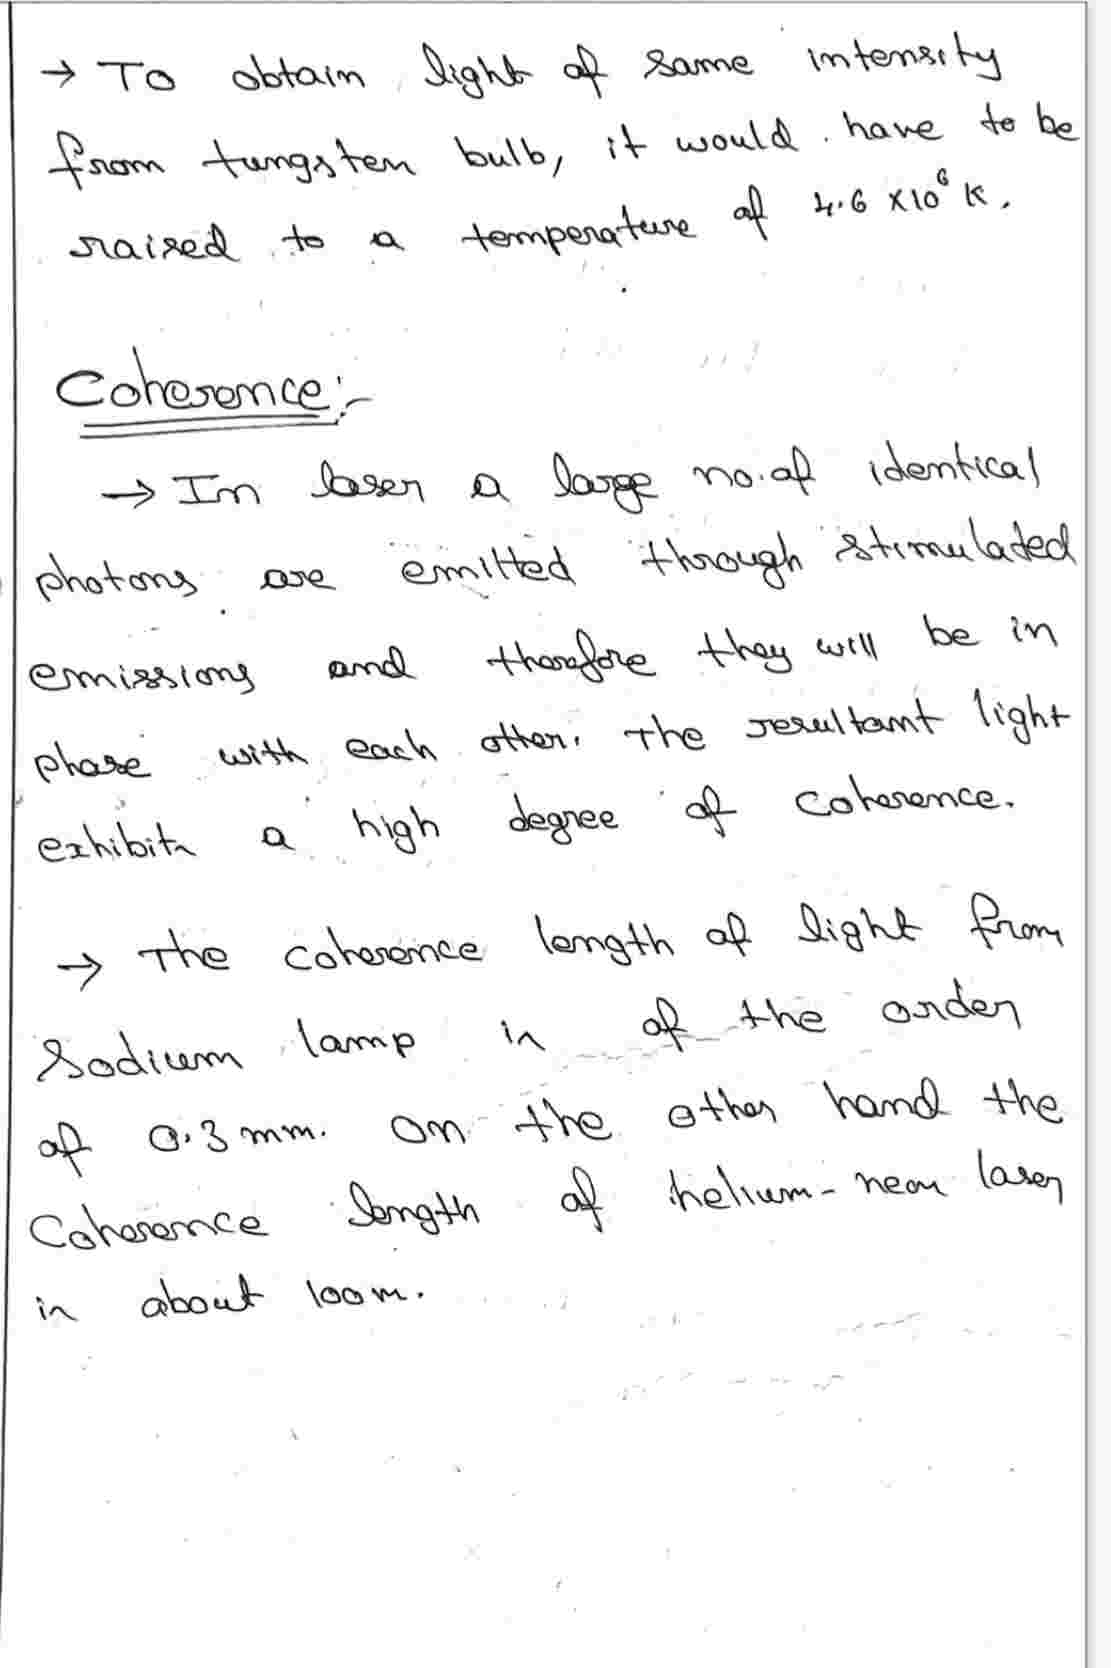 → To obtain light of same intensity
from tungsten bulb, it would have to be
raised to a temperature of 4.6 x10⁶ K.
Coherence:-
→ In laser a large no.of identical
photons are emitted through stimulated
emissions and therefore they will be in
phase with each other. The resultant light
exhibits a high degree of coherence.
→ The coherence length of light from
Sodium lamp is of the order
of 0.3 mm. On the other hand the
Coherence length of helium-neon laser
is about 100m.